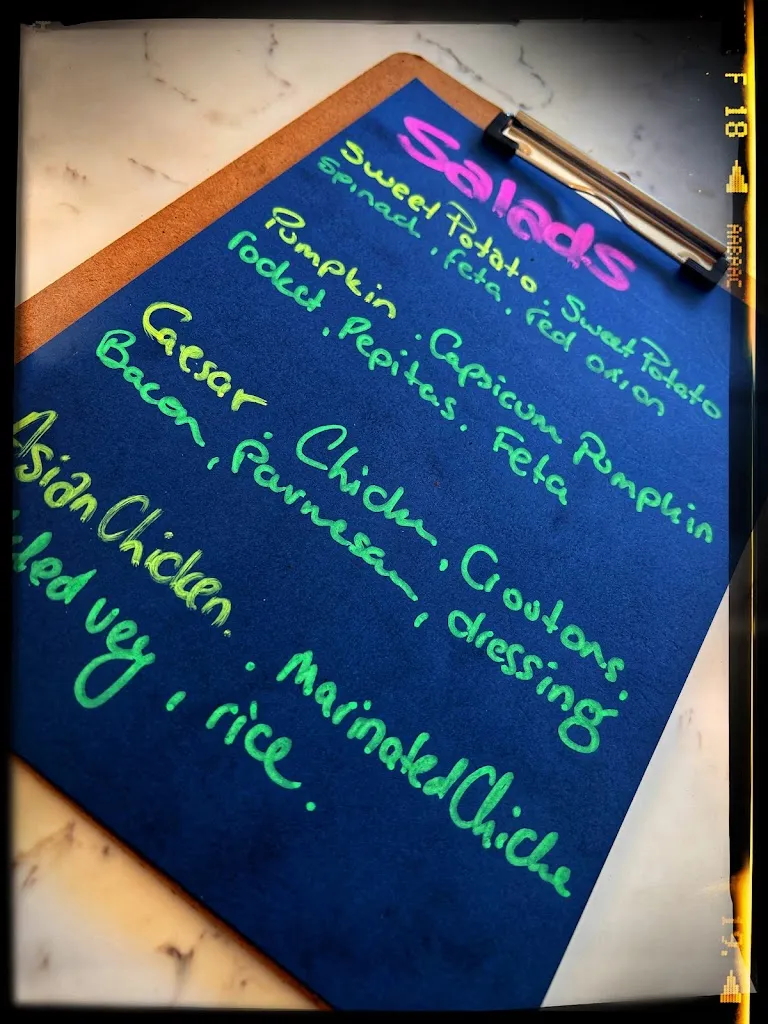 Salads
Sweet Potato . Sweet Potato
Spinach , feta , red onion
Pumpkin . Capsicum Pumpkin
rocket , Pepitas . Feta
Caesar . Chicken , Croutons ,
Bacon , Parmesan , dressing
Asian Chicken . . Marinated Chicken
veg , rice .
F 18